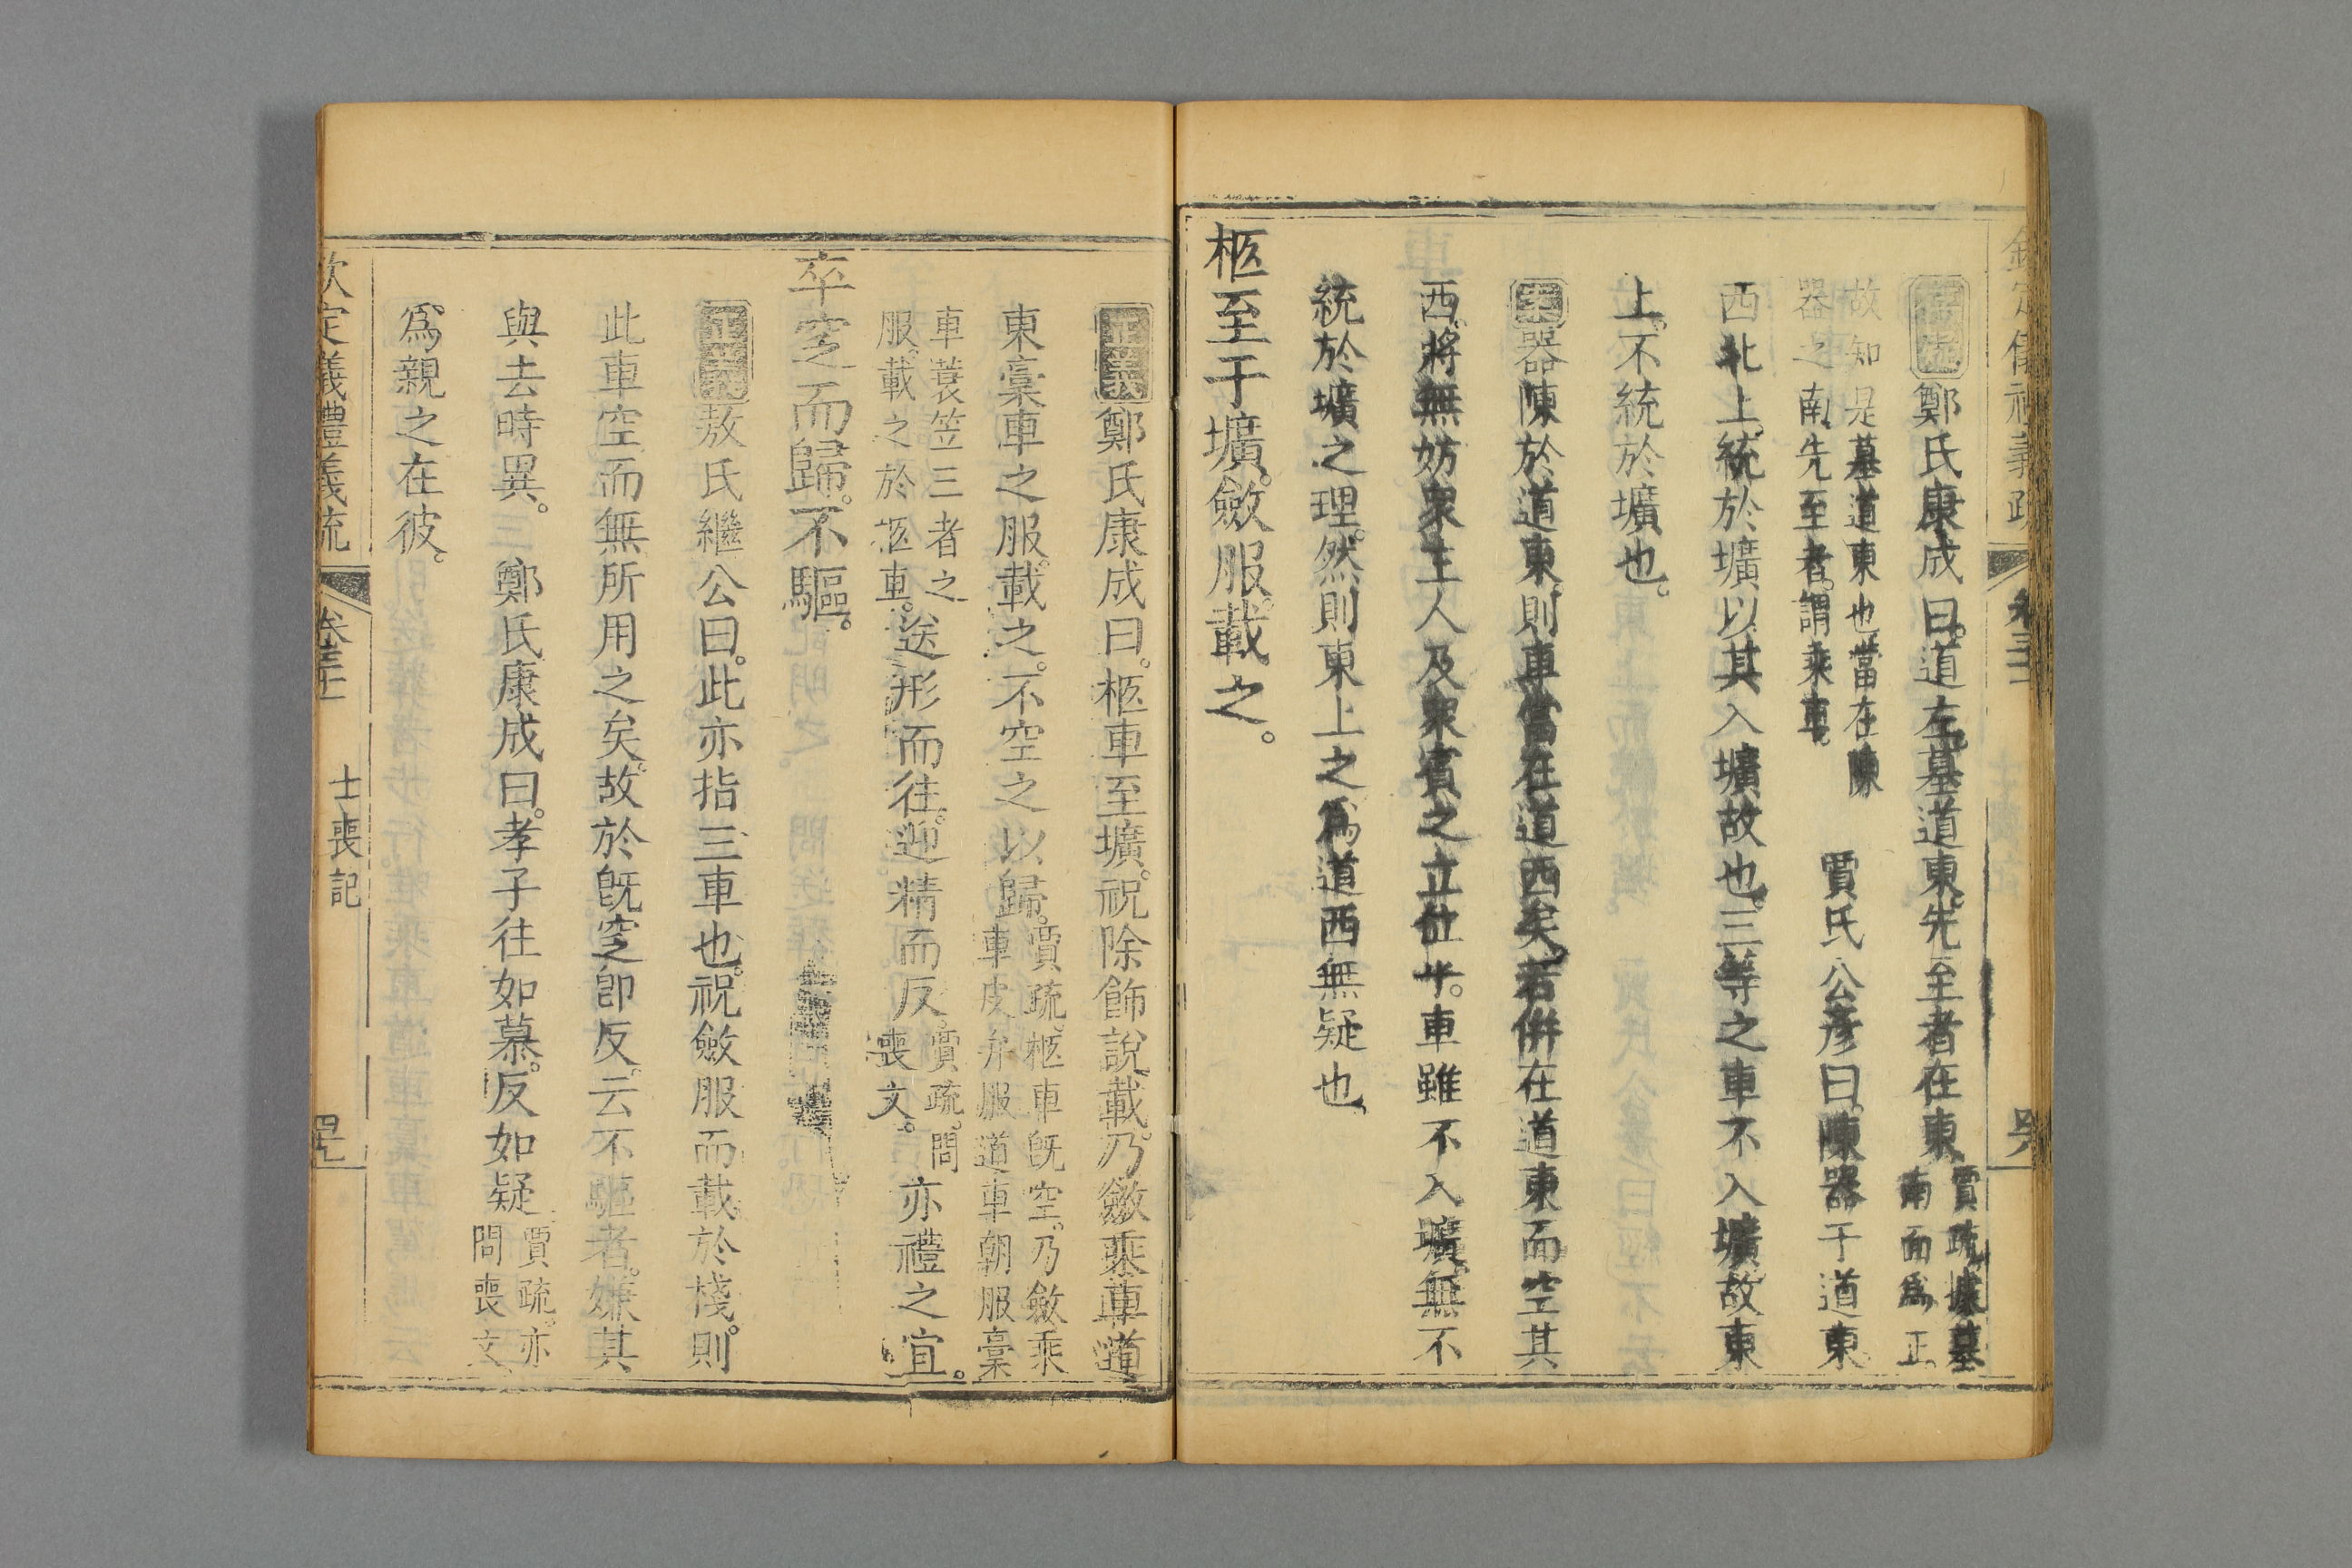 存疑鄭氏康成曰。道左。墓道東。先至者在東。賈疏。據墓南面爲正。
故知是墓道東也。當在陳器之南。先至者。謂乘車。賈氏公彥曰。陳器于道東
西北上。統於壙。以其入壙故也。三等之車不入壙。故東
上。不統於壙也。
案器陳於道東。則車當在道西矣。若併在道東而空其
西。將無妨衆主人及衆賓之立位乎。車雖不入壙。無不
統於壙之理。然則東上之爲道西無疑也。
柩至于壙。斂服載之。
正義鄭氏康成曰。柩車至壙。祝除飾說載。乃斂乘車道
東稾車之服。載之。不空之以歸。賈疏。柩車旣空。乃斂乘車皮弁服道車朝服稾
車蓑笠三者之服。載之於柩車。送形而往。迎精而反。賈疏。問喪文。亦禮之宜。
卒窆而歸。不驅。
正義敖氏繼公曰。此亦指三車也。祝斂服而載於棧。則
此車空而無所用之矣。故於旣窆卽反。云不驅者。嫌其
與去時異。鄭氏康成曰。孝子往如慕。反如疑賈疏。亦問喪文
爲親之在彼。
欽定儀禮義疏 士喪記